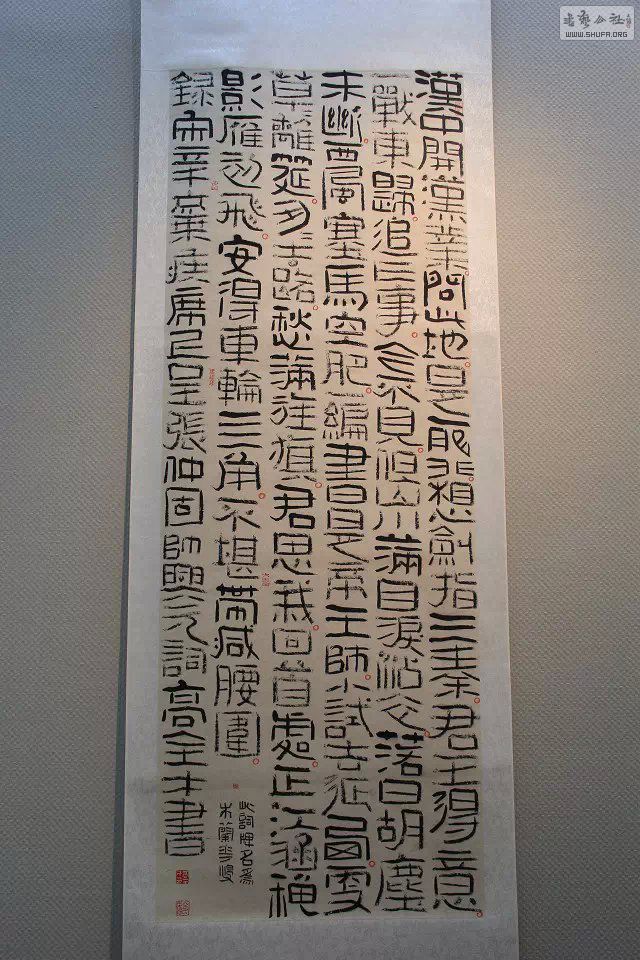 漢中開漢業問此地是耶非想劍指三秦君王得意
一戰東歸追亡事今不見但山川滿目淚沾衣落日胡塵
未斷西風塞馬空肥一編書是帝王師小試去征西更
草〻離筵匆〻去路愁滿旌旗君思我回首處正江涵秋
影雁初飛安得車輪四角不堪帶減腰圍
此詞牌名為
木蘭花慢
錄宋辛棄疾席上呈張仲固帥興元詞高全才書
书艺公社
WWW.SHUFA.ORG